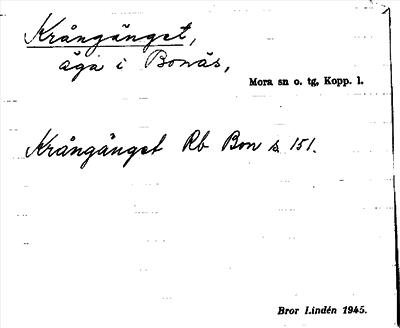 Krångänget,
äga i Bonäs,
Mora sn o. tg, Kopp. l.
Krångänget Rb Bon s. 151.
Bror Lindén 1945.